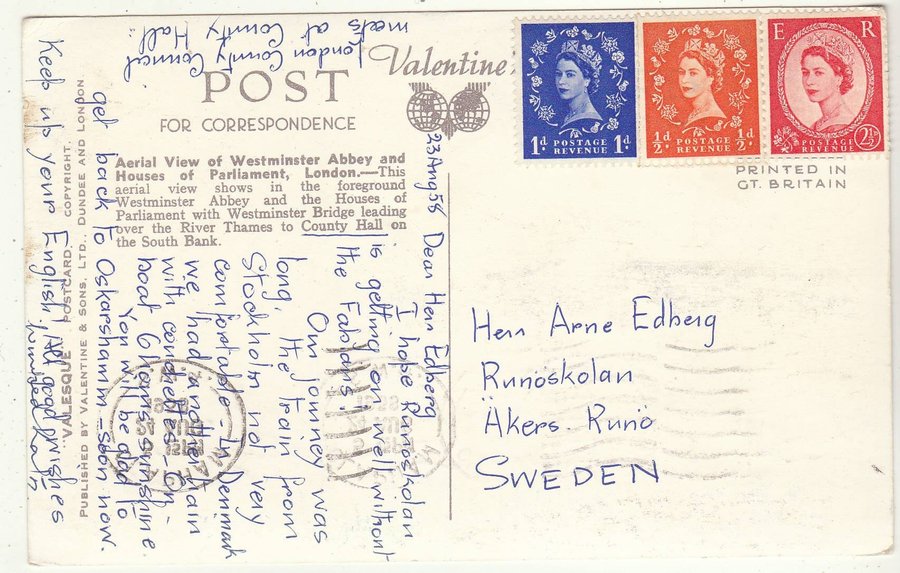 London County Council
meets at County Hall.
Valentine's
POST
FOR CORRESPONDENCE
Aerial View of Westminster Abbey and
Houses of Parliament, London.—This
aerial view shows in the foreground
Westminster Abbey and the Houses of
Parliament with Westminster Bridge leading
over the River Thames to County Hall on
the South Bank.
"VALESQUE" POSTCARD. COPYRIGHT.
PUBLISHED BY VALENTINE & SONS, LTD., DUNDEE AND LONDON
23 Aug 58 Dear Herr Edberg
I hope Runöskolan
is getting on well without
the Fabians!
Our journey was
long, the train from
Stockholm not very
comfortable – In Denmark
we had another train
with couchettes. On
boat 6 hours sunshine.
You will be glad to
get back to Oskarshamn – soon now.
Keep up your English, All good wishes
Winifred
1d POSTAGE REVENUE 1d
½d. POSTAGE REVENUE ½d.
E R
POSTAGE REVENUE 2½d
PRINTED IN
GT. BRITAIN
Herr Arne Edberg
Runöskolan
Åkers Runö
SWEDEN